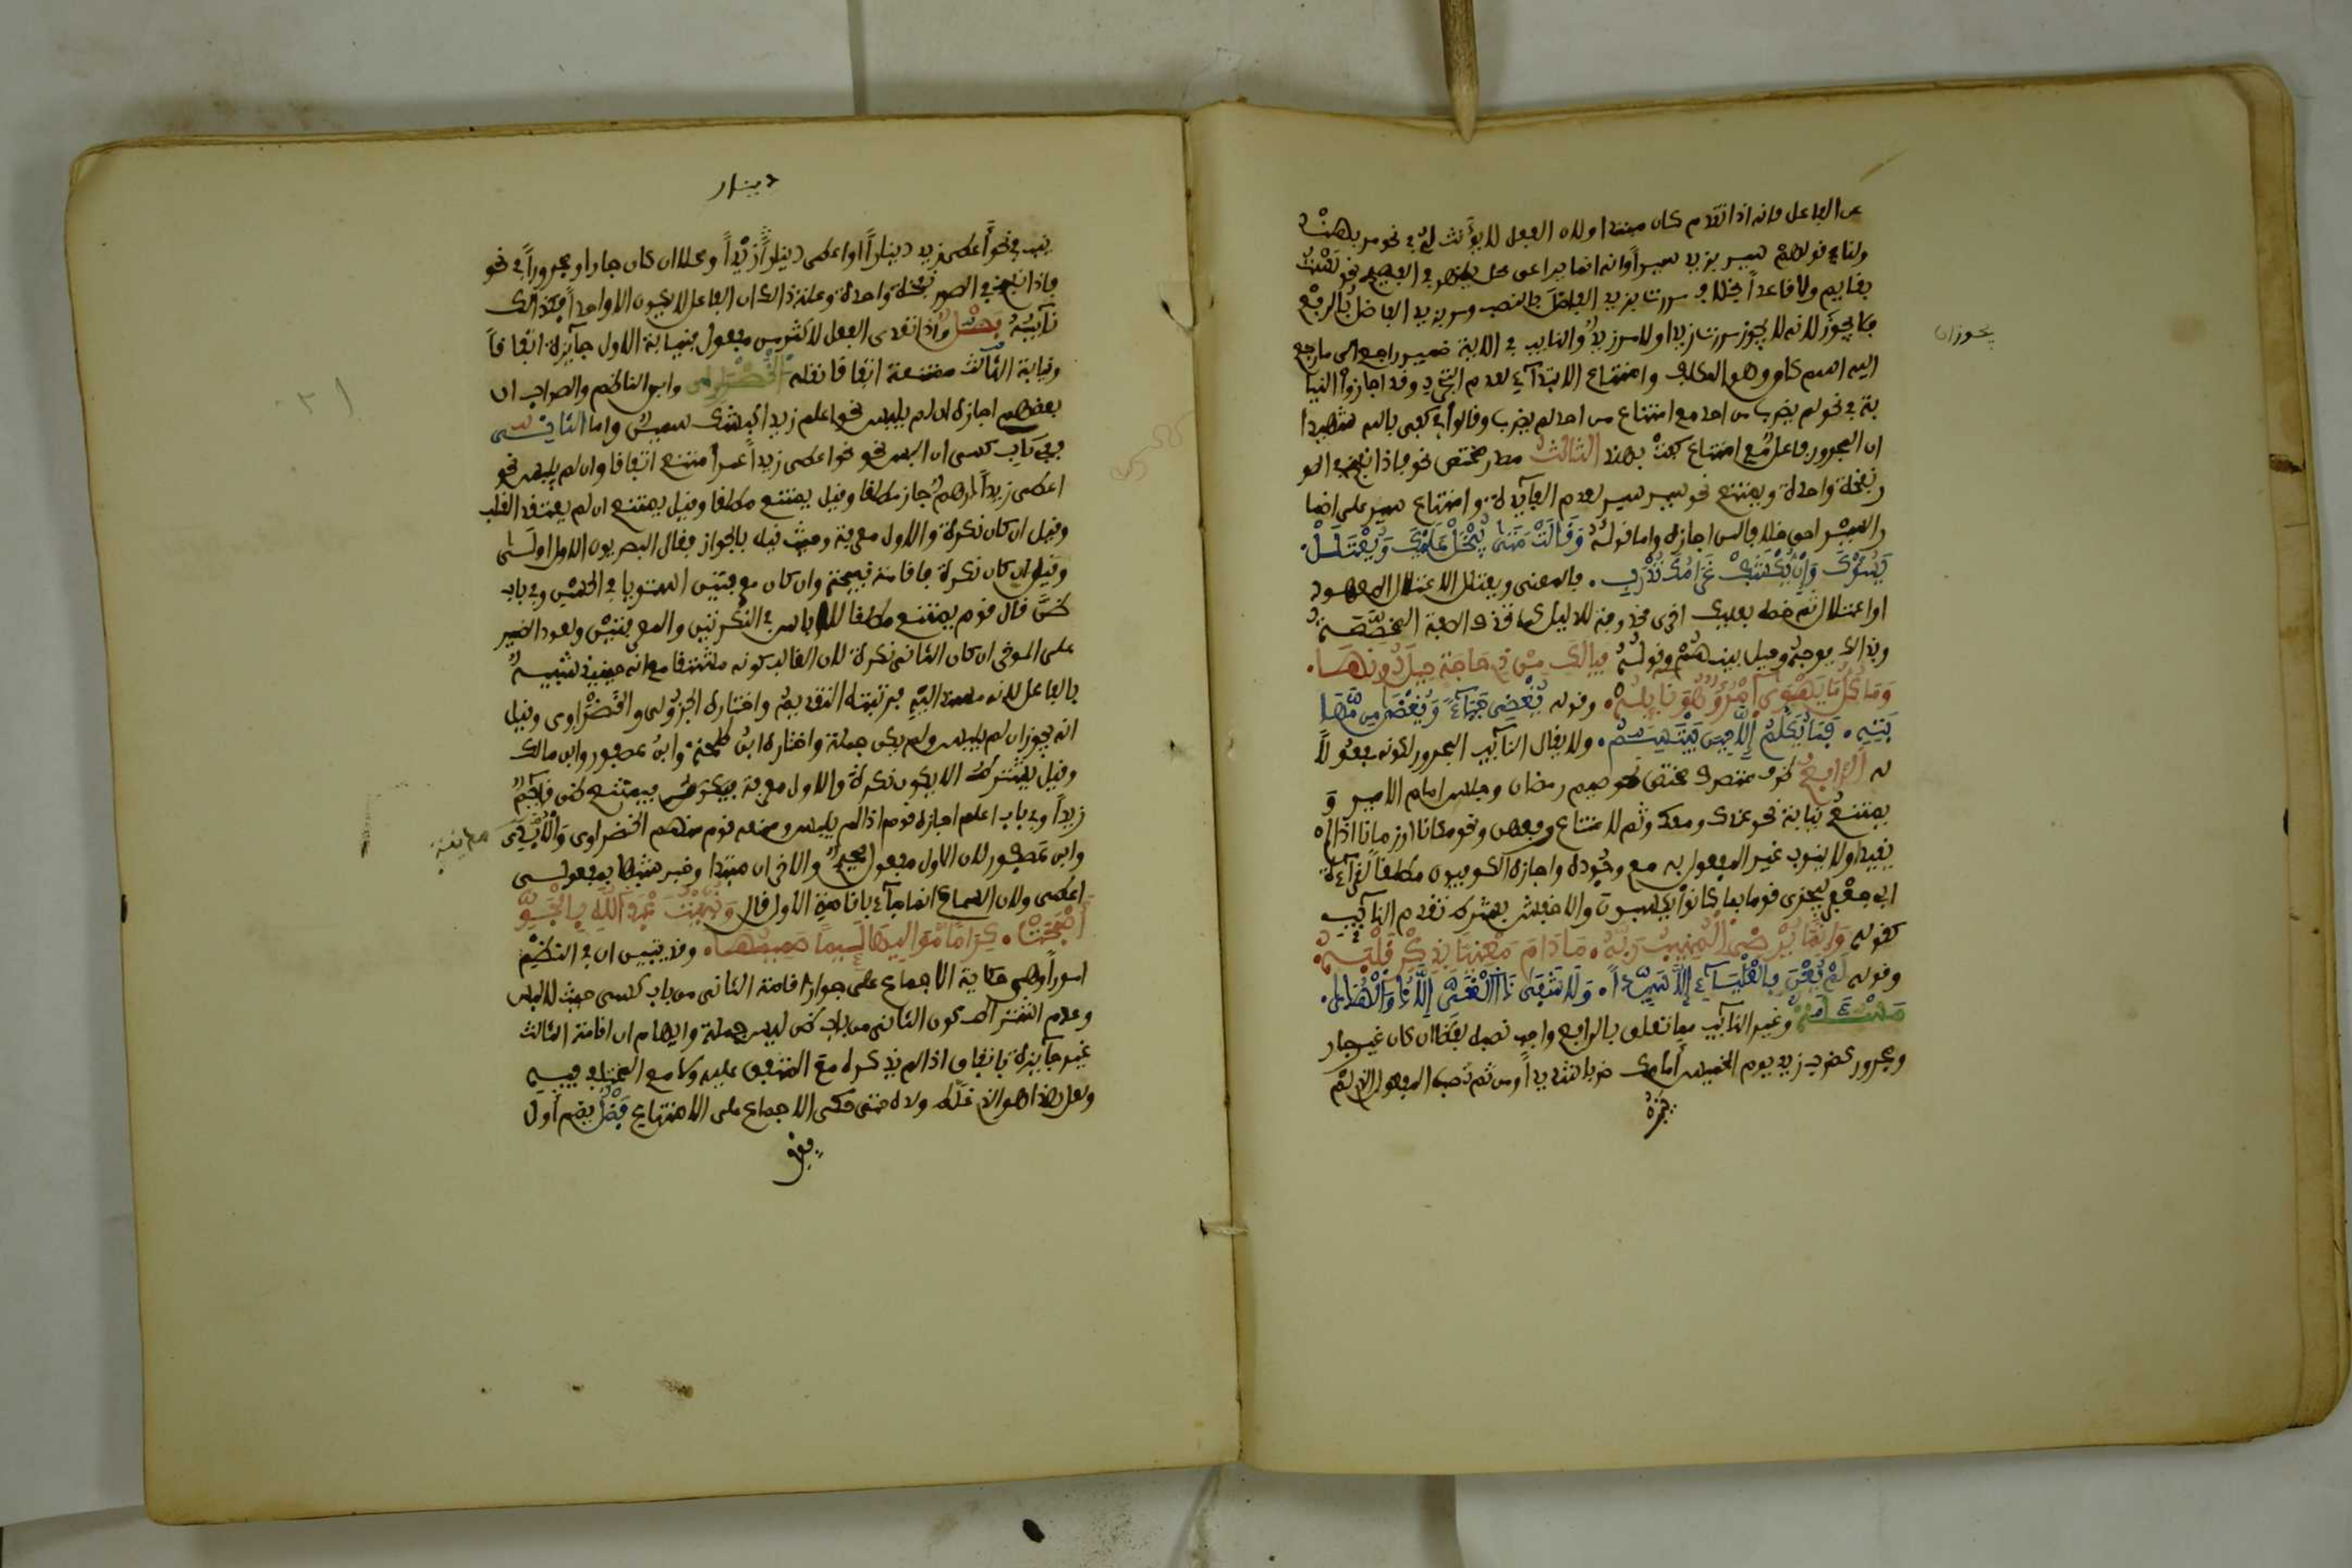 عن الفاعل فانه اذا تقدم كان مبتدا ولان الفعل لا يؤنث له في نحو مر بهند
ولنا قولهم سير بزيد سيرا وانه انما يراعى محل يظهر في الفصيح نحو لست
بقايم ولا قاعدا بخلاف مررت بزيد الفاضل بالنصب ومر بزيد الفاضل بالرفع
فلا يجوز لانه لا يجوز مررت زيدا ولا مر زيد والنايب في الاية ضمير راجع الى ما رجع
اليه اسم كان وهو المكلف وامتناع الابتداء لعدم التجرد وقد اجازوا النيا
بة في نحو لم يضرب من احد مع امتناع من احد لم يضرب وقالوا في كفى بالله شهيدا
ان المجرور فاعل مع امتناع كفت بهند الثالث مصدر مختص نحو فاذا نفخ في الصو
ر نفخة واحدة ويمتنع نحو سير سير لعدم الفايدة وامتناع سير على اضما
ر السير احق خلافا لمن اجازه واما قوله وَقَالَتْ مَتَى يُبْخَلْ عَلَيْكَ وَيُعْتَلَلْ
يَسُؤْكَ وَإِنْ يُكْشَفْ غَرَامُكَ تَدْرَبِ. فالمعنى ويعتلل الاعتلال المعهود
او اعتلال ثم خصه بعليك اخرى محذوفة للدليل كما تحذف الصفة المخصصة
وبذالك يوجه وحيل بينهم وقوله فيالك من ذي حاجة حيل دونها.
وَمَا كُلُّ مَا يَهْوَى امْرُؤٌ هُوَ نَايِلُهْ. وقوله يُغْضِي حَيَاءً وَيُغْضَى مِن مَّهَا
بَتِهِ. فَمَا يُكَلَّمُ إِلَّا حِينَ يَبْتَسِمُ. ولا يقال النايب المجرور لكونه مفعولا
له الرابع ظرف متصرف مختص نحو صيم رمضان وجلس امام الامير و
يمتنع نيابة نحو عندك ومعك وثم لامتناع رفعهن ونحو مكانا وزمانا اذا لم
يقيدا ولا ينوب غير المفعول به مع وجوده واجازه الكوفيون مطلقا لقراءة
ابي جعفر ليجزى قوما بما كانوا يكسبون والاخفش بشرط تقدم النايب
كقوله وَإِنَّمَا يُرْضِي الْمُنِيبُ رَبَّهُ. مَا دَامَ مَعْنِيًّا بِذِكْرٍ قَلْبَهُ.
وقوله لَمْ يُعْنَ بِالْعَلْيَاءِ إِلَّا سَيِّدًا. وَلَا شَفَى ذَا الْغَيِّ إِلَّا ذُو الْهُدَى.
مسئلة وغير النايب مما تعلق بالرافع واجب نصبه لفظا ان كان غير جار
ومجرور كضرب زيد يوم الخميس امامك ضربا شديدا ومن ثم نصب المفعول الذي لم
يجوزان
دينار
ينب في نحو اعطي زيد دينارا او اعطي دينار زيدا ومحلا ان كان جارا ومجرورا في نحو
فاذا نفخ في الصور نفخة واحدة وعلة ذالك ان الفاعل لا يكون الا واحدا فكذالك
نايبه بصل واذا تعدى الفعل لاكثر من مفعول فنيابة الاول جايزة اتفاقا
ونيابة الثالث ممتنعة اتفاقا نقله الخضراوي وابن الناظم والصواب ان
بعضهم اجازه ان لم يلبس نحو اعلم زيدا كبشك سمين واما الثاني
ففي باب كسى ان البس نحو نحو اعطي زيدا عمرا امتنع اتفاقا وان لم يلبس نحو
اعطي زيدا درهم جاز مطلقا وقيل يمتنع مطلقا وقيل يمتنع ان لم يعتقد القلب
وقيل ان كان نكرة والاول معرفة وحيث قيل بالجواز فقال البصريون الاول اولى
وقيل ان كان نكرة فاقامته قبيحة وان كان معرفتين استويا في الحسن وفي باب
ظن قال قوم يمتنع مطلقا للالباس في النكرتين والمعرفتين ولعود الضمير
على الموخر ان كان الثاني نكرة لان الغالب كونه مشتقا مع انه حينيذ شبيه
بالفاعل لانه مسند اليه فرتبته التقديم واختاره الجزولي والخضراوي وقيل
انه يجوز ان لم يلبس ولم يكن جملة واختاره ابن طلحة وابن عصفور وابن مالك
وقيل يشترط الا يكون نكرة والاول معرفة فيمتنع ظن قايم
زيدا وفي باب اعلم اجازه قوم اذا لم يلبس ومنعه قوم منهم الخضراوي والابذي
وابن عصفور لان الاول مفعول صحيح والاخران مبتدا وخبر شبها بمفعولي
اعطى ولان السماع انما جاء باقامة الاول قال وَنُبِّئْتُ عَبْدَ اللَّهِ بِالْجَوِّ
أَصْبَحَتْ. كِرَامًا مَوَالِيهَا لَئِيمًا صَمِيمُهَا. وقد تبين ان في النظم
امورا وهي حكاية الاجماع على جواز اقامة الثاني من باب كسى حيث لا لبس
وعدم اشتراط كون الثاني من باب ظن ليس جملة وايهام ان اقامة الثالث
غير جايزة باتفاق اذ لم يذكره مع المتفق عليه ولا مع المختلف فيه
ولعل هذا هو الذي غلط ولده حتى حكى الاجماع على الامتناع فصل يضم اول